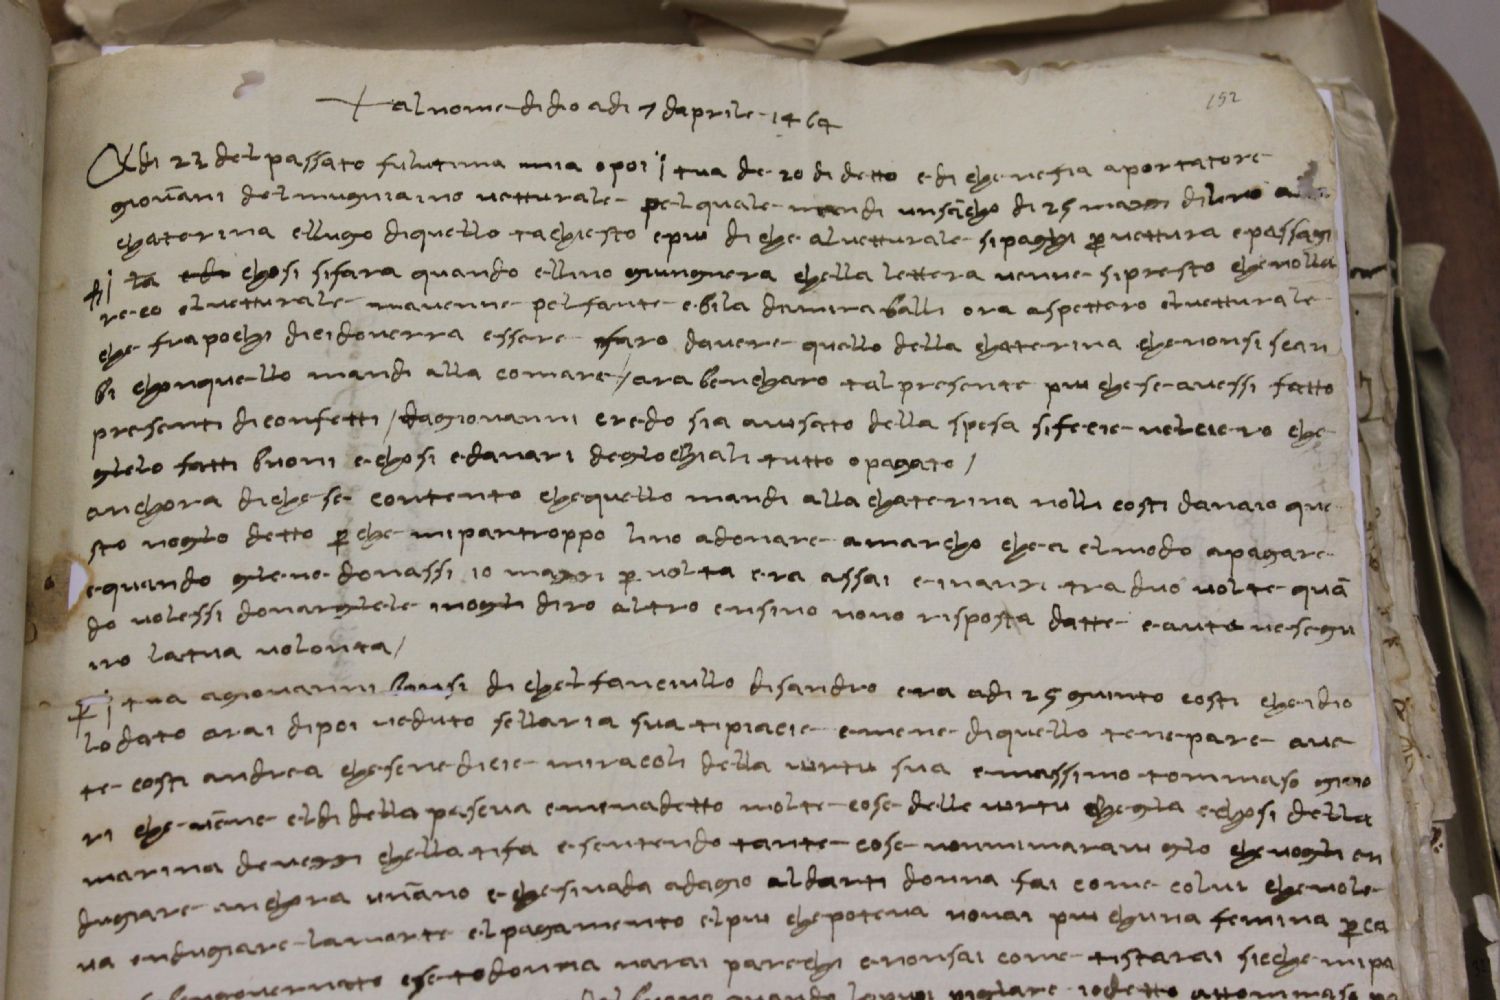 152
al nome di dio adi 7 daprile 1464
Adi 22 del passato fu lutima mia opoi j tua de 20 di detto e di che ne sia aportatore
giovāni del mugniaino vetturale pel quale mandi unsācho di 25 mazzi di lino alla
chaterina e llugo di quello tachiesto e piu di che al vetturale si paghi p vettura e passagi
chosi si fara quando ellino giungnera chella lettera venne si presto che nolla
re co il vetturale ma venne pel fante e bila damiraballi ora aspettero il vetturale
che fra pochi di ci doverra essere faro davere quello della chaterina che non si scan
bi chon quello mandi alla comare / ara ben charo tal presente piu che se avessi fatto
presenti di confetti / da giovanni credo sia avisato della spesa si fecie che
gielo fatti buoni e chosi e danari degiochiali tutto o pagato /
anchora di che se contento che quello mandi alla chaterina nolli costi danaio que
sto noglo detto p che mi par troppo lino a donare a marcho che a el modo a pagare
e quando gie ne donassi 10 mazzi p volta era assai e inanzi tra duo volte quā
do volessi donargiele nogli diro altro e insino nono risposta datte e auto ne segu
iro la tua volonta /
P j tua a giovanni di chel fanciullo di sandro era adi 25 giunto costi che idio
lodato arai di poi veduto sellaria sua ti piacie e mene di quello te ne pare ave
te costi andrea che se ne dicie miracoli della virtu sua e massimo tommaso gino
ri che viēne el di della pasqua e me na detto molte cose delle virtu chegla e chosi della
marina de vezzi chella ti fa e sentendo tante cose non mi maraviglo che vogli in
dugiare anchora unāno e che si vada adagio al darti donna fai come colui che vole
va indugiare la morte e l pagamento el piu che poteva non ai piu chuna femina p ca
governatto e se to donna narai parechi e non sai come ti starai si che mi pa
quando la vuoi pigliare io detto a ttommaso